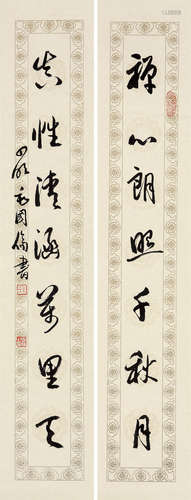 禅心朗照千秋月
真性清涵万里天
四明毛国伦书